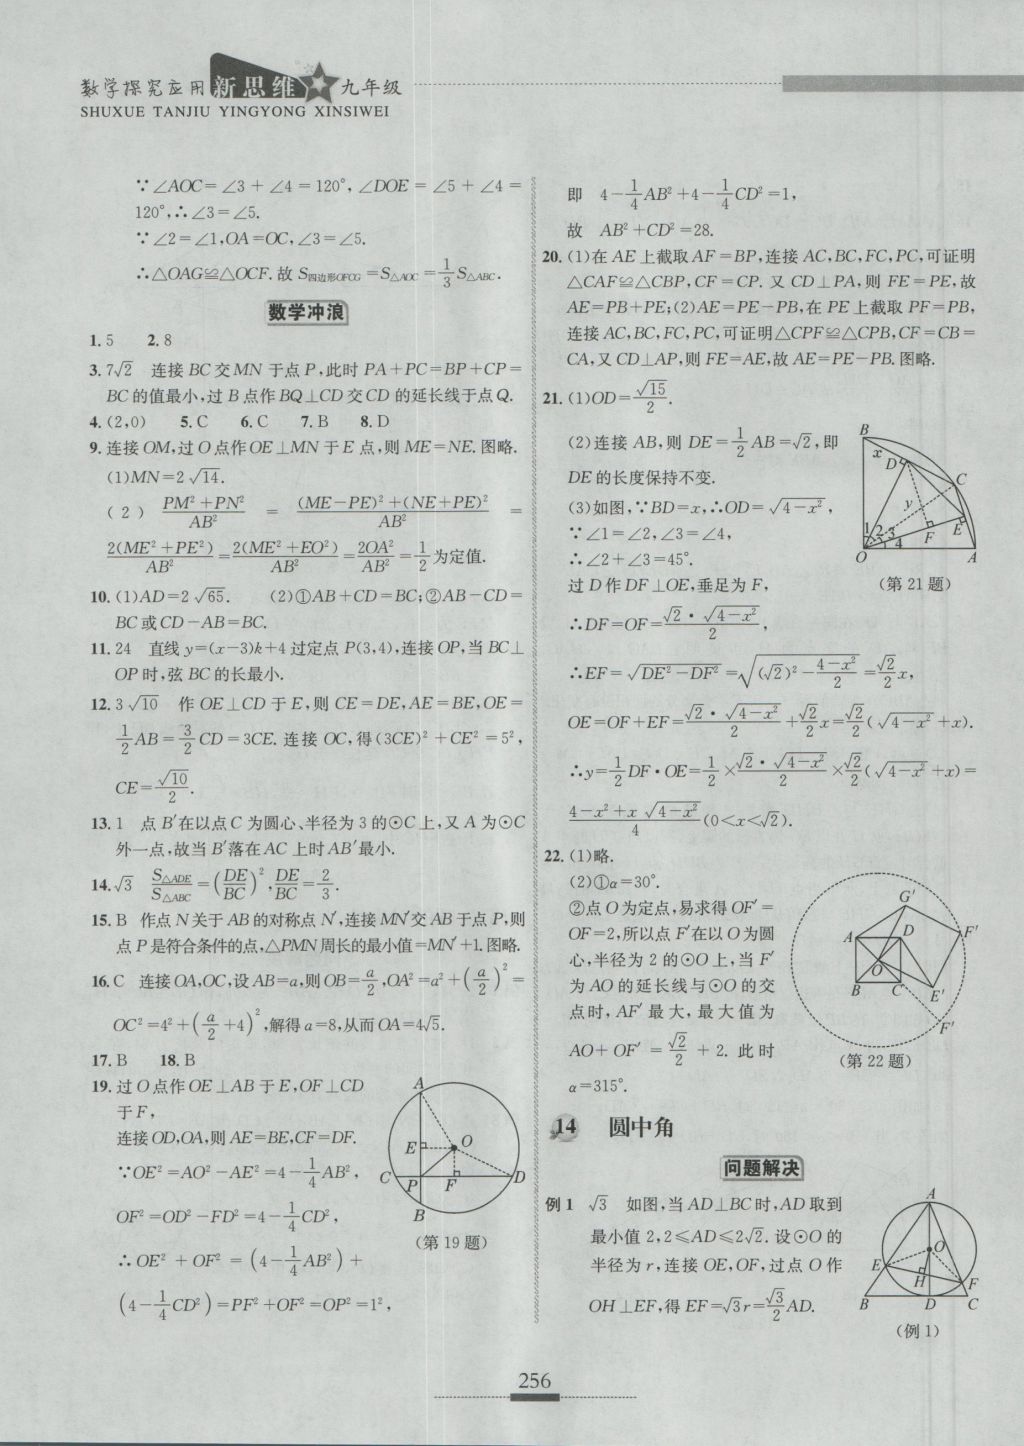 数学探究应用新思维 九年级
SHUXUE TANJIU YINGYONG XINSIWEI
∵∠AOC=∠3+∠4=120°,∠DOE=∠5+∠4=
120°,∴∠3=∠5.
∵∠2=∠1,OA=OC,∠3=∠5.
∴△OAG≌△OCF.故 S四边形OFCG=S△AOC=1/3 S△ABC.
数学冲浪
1. 5 2. 8
3. 7√2 连接 BC 交 MN 于点 P,此时 PA+PC=BP+CP=
BC 的值最小,过 B 点作 BQ⊥CD 交 CD 的延长线于点 Q.
4. (2,0) 5. C 6. C 7. B 8. D
9. 连接 OM,过 O 点作 OE⊥MN 于 E 点,则 ME=NE.图略.
(1)MN=2√14.
(2) (PM²+PN²)/AB² = ((ME-PE)²+(NE+PE)²)/AB² =
2(ME²+PE²)/AB²=2(ME²+EO²)/AB²=2OA²/AB²=1/2为定值.
10. (1)AD=2√65. (2)①AB+CD=BC;②AB-CD=
BC 或 CD-AB=BC.
11. 24 直线 y=(x-3)k+4 过定点 P(3,4),连接 OP,当 BC⊥
OP 时,弦 BC 的长最小.
12. 3√10 作 OE⊥CD 于 E,则 CE=DE,AE=BE,OE=
1/2 AB=3/2 CD=3CE.连接 OC,得(3CE)²+CE²=5²,
CE=√10/2.
13. 1 点 B′在以点 C 为圆心、半径为 3 的⊙C 上,又 A 为⊙C
外一点,故当 B′落在 AC 上时 AB′最小.
14. √3 S△ADE/S△ABC=(DE/BC)²,DE/BC=2/3.
15. B 作点 N 关于 AB 的对称点 N′,连接 MN′交 AB 于点 P,则
点 P 是符合条件的点,△PMN 周长的最小值=MN′+1.图略.
16. C 连接 OA,OC,设 AB=a,则 OB=a/2,OA²=a²+(a/2)²=
OC²=4²+(a/2+4)²,解得 a=8,从而 OA=4√5.
17. B 18. B
19. 过 O 点作 OE⊥AB 于 E,OF⊥CD
于 F,
连接 OD,OA,则 AE=BE,CF=DF.
∵OE²=AO²-AE²=4-1/4 AB²,
OF²=OD²-FD²=4-1/4 CD²,
∴OE²+OF²=(4-1/4 AB²)+
(4-1/4 CD²)=PF²+OF²=OP²=1²,
A
E
O
C
P
F
D
B
(第 19 题)
即 4-1/4 AB²+4-1/4 CD²=1,
故 AB²+CD²=28.
20. (1)在 AE 上截取 AF=BP,连接 AC,BC,FC,PC,可证明
△CAF≌△CBP,CF=CP.又 CD⊥PA,则 FE=PE,故
AE=PB+PE;(2)AE=PE-PB,在 PE 上截取 PF=PB,
连接 AC,BC,FC,PC,可证明△CPF≌△CPB,CF=CB=
CA,又 CD⊥AP,则 FE=AE,故 AE=PE-PB.图略.
21. (1)OD=√15/2.
(2)连接 AB,则 DE=1/2 AB=√2,即
DE 的长度保持不变.
(3)如图,∵BD=x,∴OD=√(4-x²),
∵∠1=∠2,∠3=∠4,
∴∠2+∠3=45°.
过 D 作 DF⊥OE,垂足为 F,
∴DF=OF=(√2·√(4-x²))/2,
∴EF=√(DE²-DF²)=√((√2)²-(4-x²)/2)=√2/2 x,
OE=OF+EF=(√2·√(4-x²))/2+√2/2 x=√2/2(√(4-x²)+x).
∴y=1/2 DF·OE=1/2×(√2·√(4-x²))/2×√2/2(√(4-x²)+x)=
(4-x²+x√(4-x²))/4(0<x<√2).
B
x
D
C
y
1 2 3
4
F
E
O
A
(第 21 题)
22. (1)略.
(2)①α=30°.
②点 O 为定点,易求得 OF′=
OF=2,所以点 F′在以 O 为圆
心,半径为 2 的⊙O 上,当 F′
为 AO 的延长线与⊙O 的交
点时,AF′最大,最大值为
AO+OF′=√2/2+2.此时
α=315°.
G′
A
D
F′
O
B
C
E′
F′
(第 22 题)
14 圆中角
问题解决
例 1 √3 如图,当 AD⊥BC 时,AD 取到
最小值 2,2≤AD≤2√2.设⊙O 的
半径为 r,连接 OE,OF,过点 O 作
OH⊥EF,得 EF=√3r=√3/2 AD.
A
O
E
H
F
B
D
C
(例 1)
256